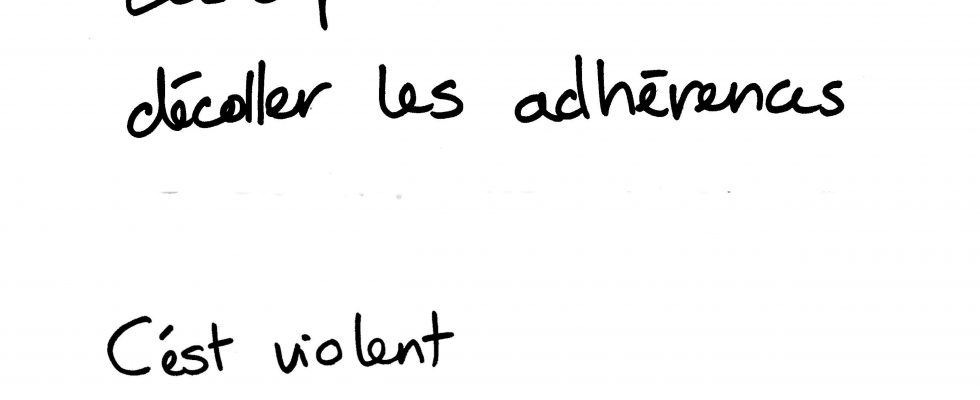 décoller les adhérences
C'est violent